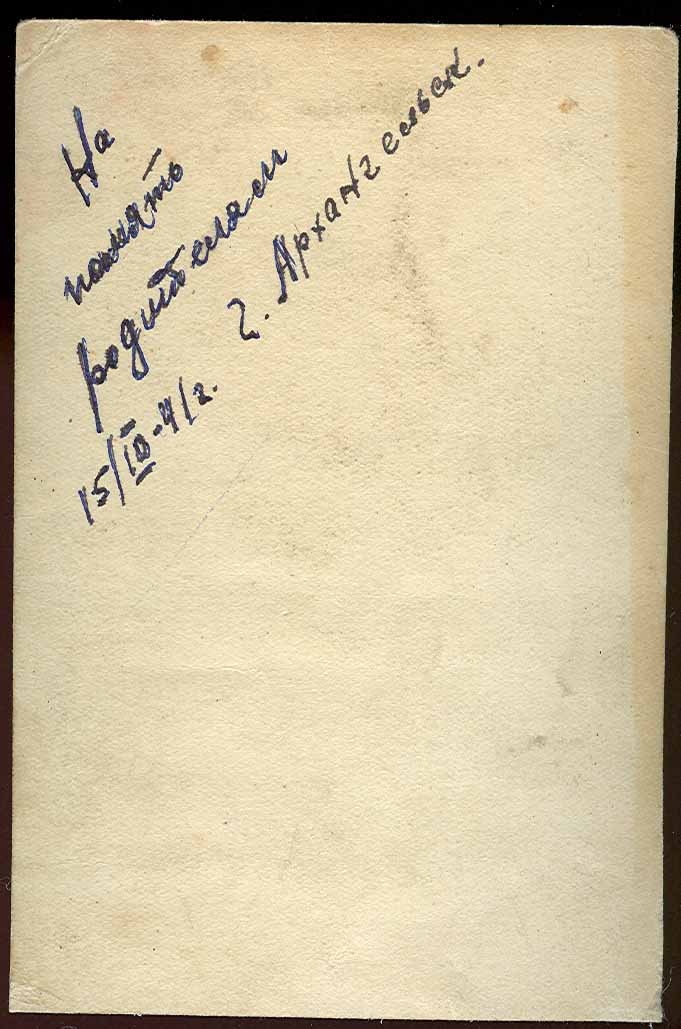 На
память
родителям
15/IV-41г. г. Архангельск.